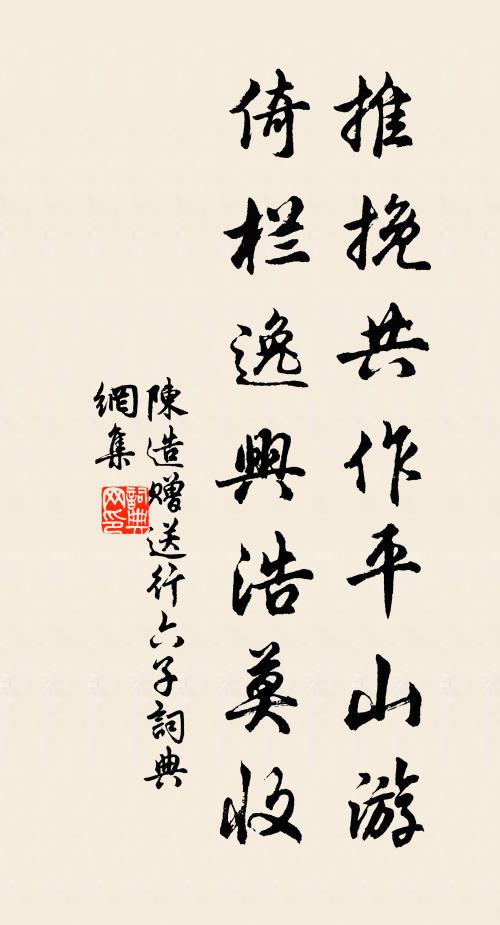 推挽共作平山游
倚栏逸興浩莫收
陳造贈送行六子詞典
網集
詞典
网印